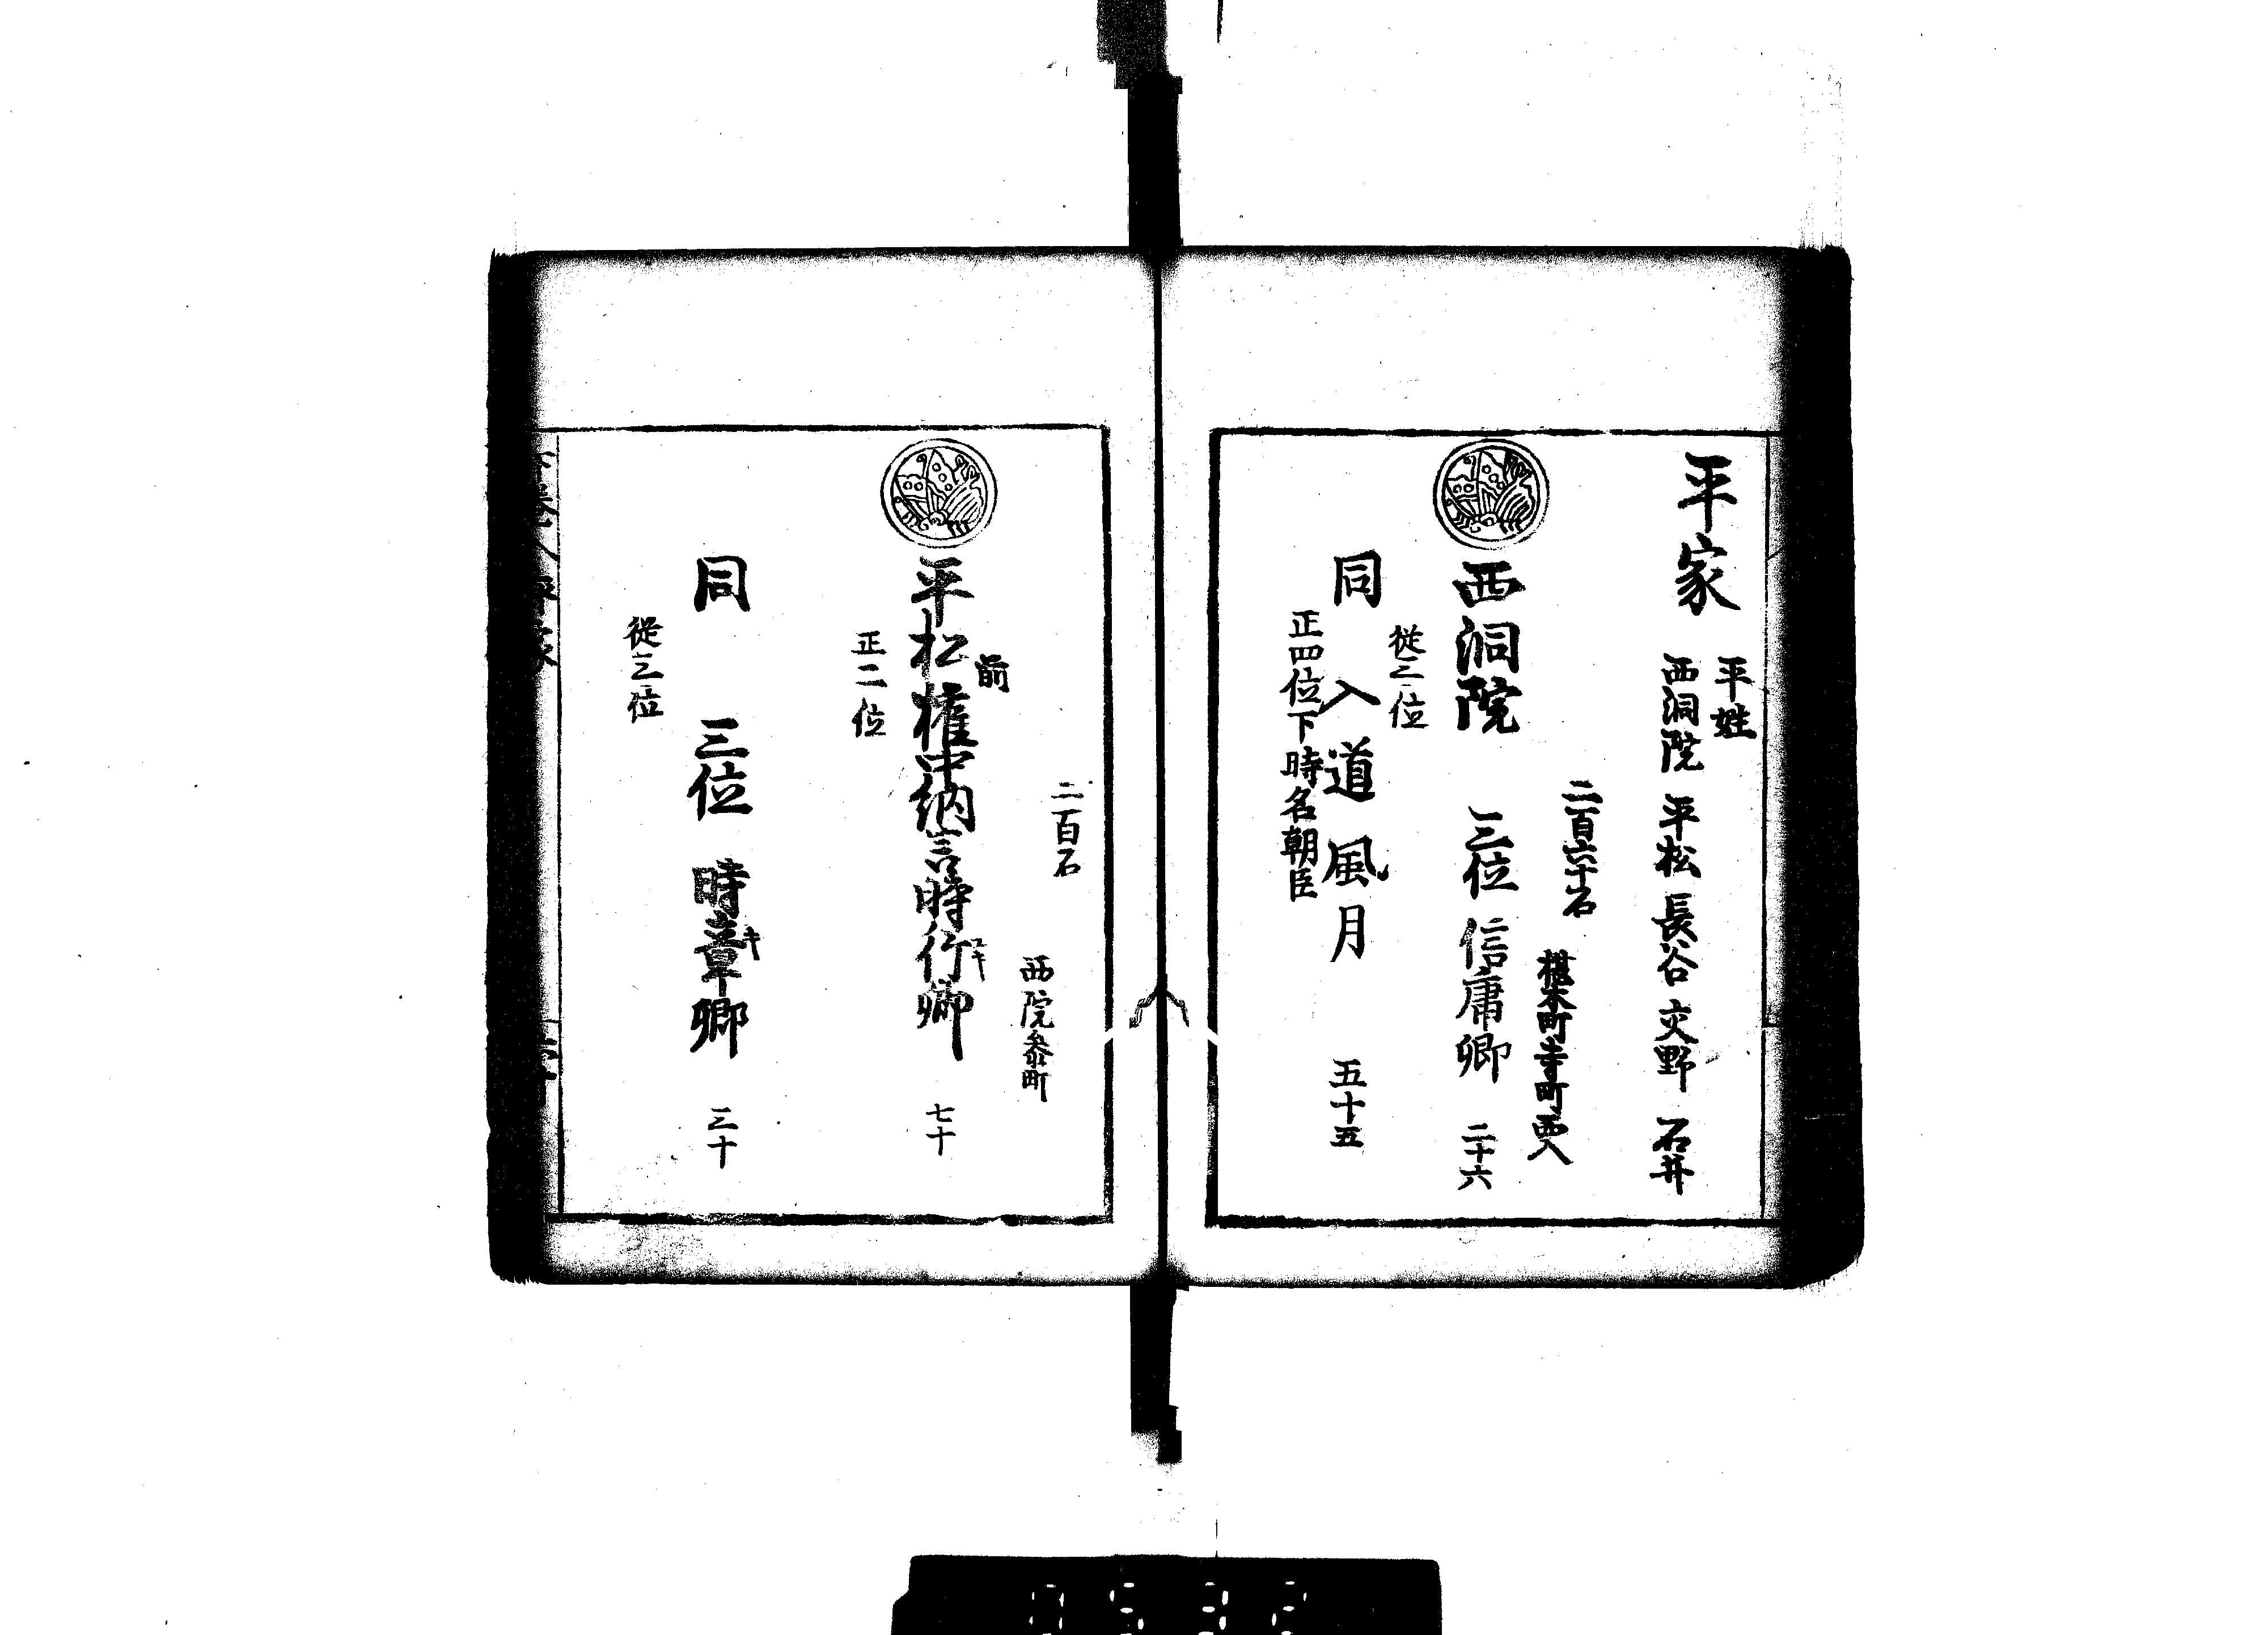 平家
平姓
西洞院 平松 長谷 交野 石井
二百六十石
椹木町寺町西入
西洞院 三位 信庸卿 二十六
従三位
同 入道 風月 五十五
正四位下時名朝臣
二百石
西院参町
前
平松権中納言時行卿 七十
ユキ
正二位
同 三位 時章卿 三十
キ
従三位